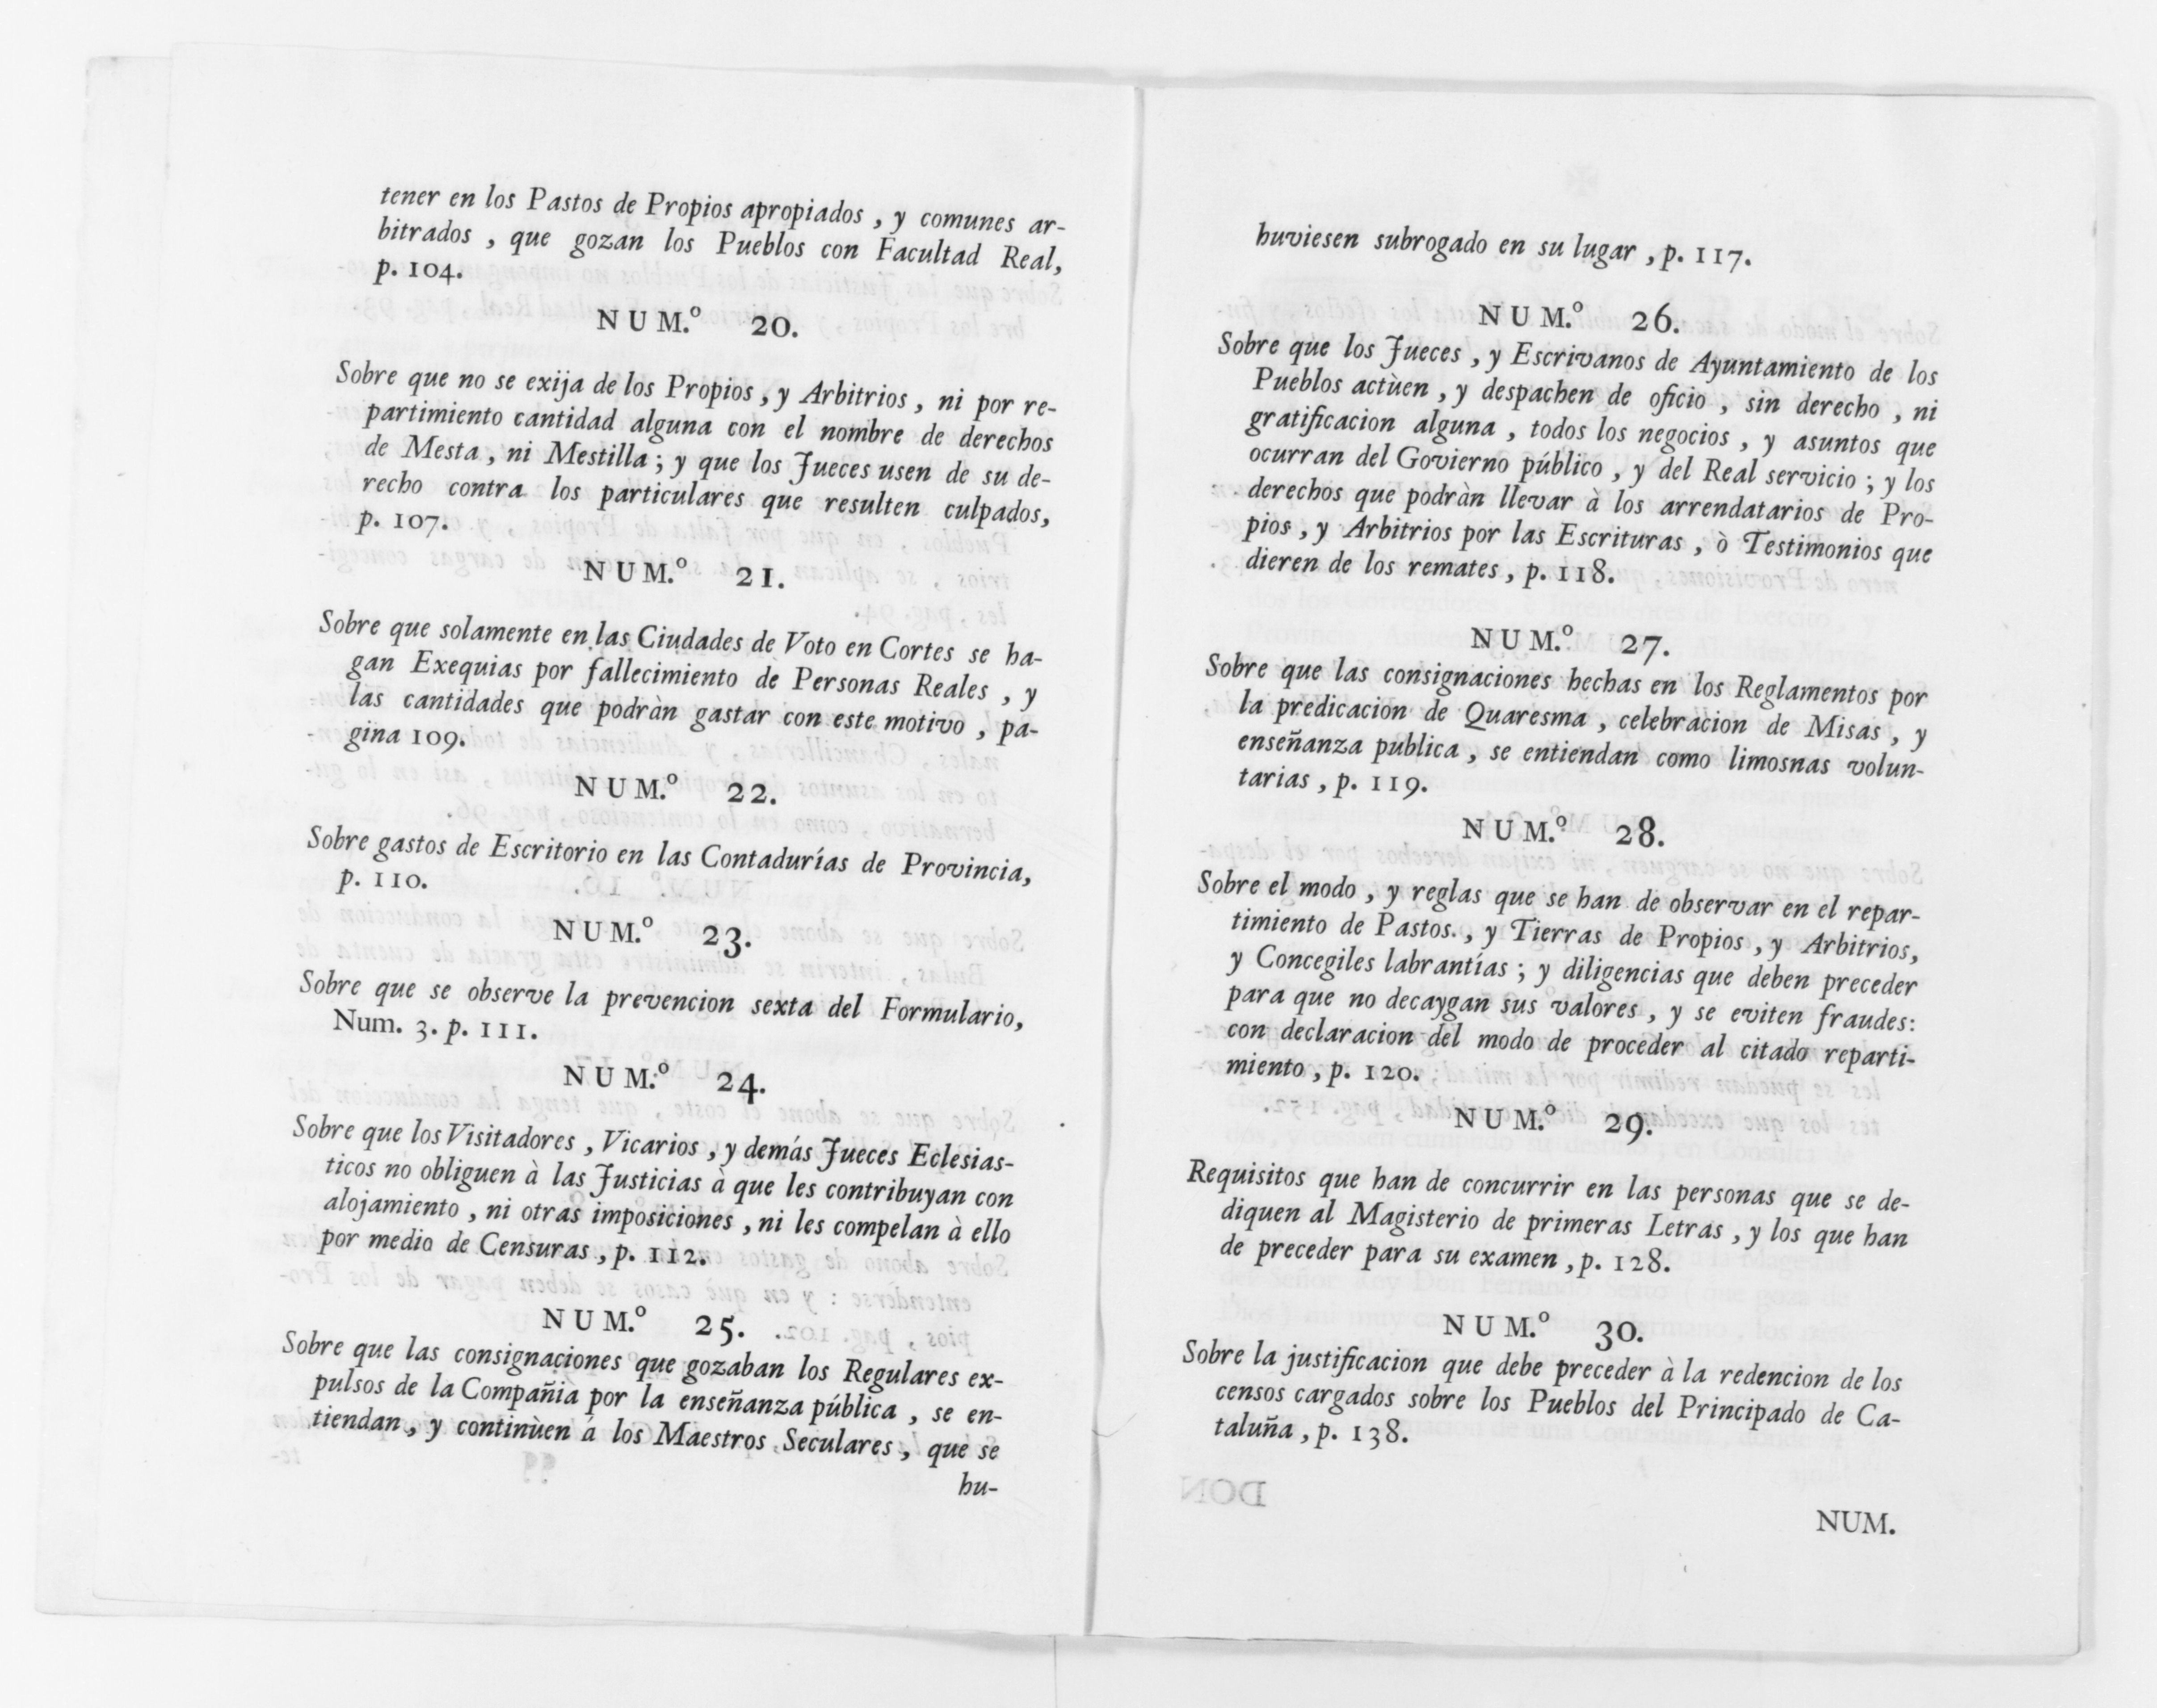 tener en los Pastos de Propios apropiados , y comunes ar-
bitrados , que gozan los Pueblos con Facultad Real,
p. 104.
NUM.º 20.
Sobre que no se exija de los Propios , y Arbitrios , ni por re-
partimiento cantidad alguna con el nombre de derechos
de Mesta , ni Mestilla ; y que los Jueces usen de su de-
recho contra los particulares que resulten culpados,
p. 107.
NUM.º 21.
Sobre que solamente en las Ciudades de Voto en Cortes se ha-
gan Exequias por fallecimiento de Personas Reales , y
las cantidades que podràn gastar con este motivo , pa-
gina 109.
NUM.º 22.
Sobre gastos de Escritorio en las Contadurías de Provincia,
p. 110.
NUM.º 23.
Sobre que se observe la prevencion sexta del Formulario,
Num. 3. p. 111.
NUM.º 24.
Sobre que los Visitadores , Vicarios , y demás Jueces Eclesias-
ticos no obliguen à las Justicias à que les contribuyan con
alojamiento , ni otras imposiciones , ni les compelan à ello
por medio de Censuras , p. 112.
NUM.º 25.
Sobre que las consignaciones que gozaban los Regulares ex-
pulsos de la Compañia por la enseñanza pública , se en-
tiendan , y continùen á los Maestros Seculares , que se
hu-
huviesen subrogado en su lugar , p. 117.
NUM.º 26.
Sobre que los Jueces , y Escrivanos de Ayuntamiento de los
Pueblos actùen , y despachen de oficio , sin derecho , ni
gratificacion alguna , todos los negocios , y asuntos que
ocurran del Govierno público , y del Real servicio ; y los
derechos que podràn llevar à los arrendatarios de Pro-
pios , y Arbitrios por las Escrituras , ò Testimonios que
dieren de los remates , p. 118.
NUM.º 27.
Sobre que las consignaciones hechas en los Reglamentos por
la predicacion de Quaresma , celebracion de Misas , y
enseñanza publica , se entiendan como limosnas volun-
tarias , p. 119.
NUM.º 28.
Sobre el modo , y reglas que se han de observar en el repar-
timiento de Pastos , y Tierras de Propios , y Arbitrios,
y Concegiles labrantías ; y diligencias que deben preceder
para que no decaygan sus valores , y se eviten fraudes:
con declaracion del modo de proceder al citado reparti-
miento , p. 120.
NUM.º 29.
Requisitos que han de concurrir en las personas que se de-
diquen al Magisterio de primeras Letras , y los que han
de preceder para su examen , p. 128.
NUM.º 30.
Sobre la justificacion que debe preceder à la redencion de los
censos cargados sobre los Pueblos del Principado de Ca-
taluña , p. 138.
NUM.